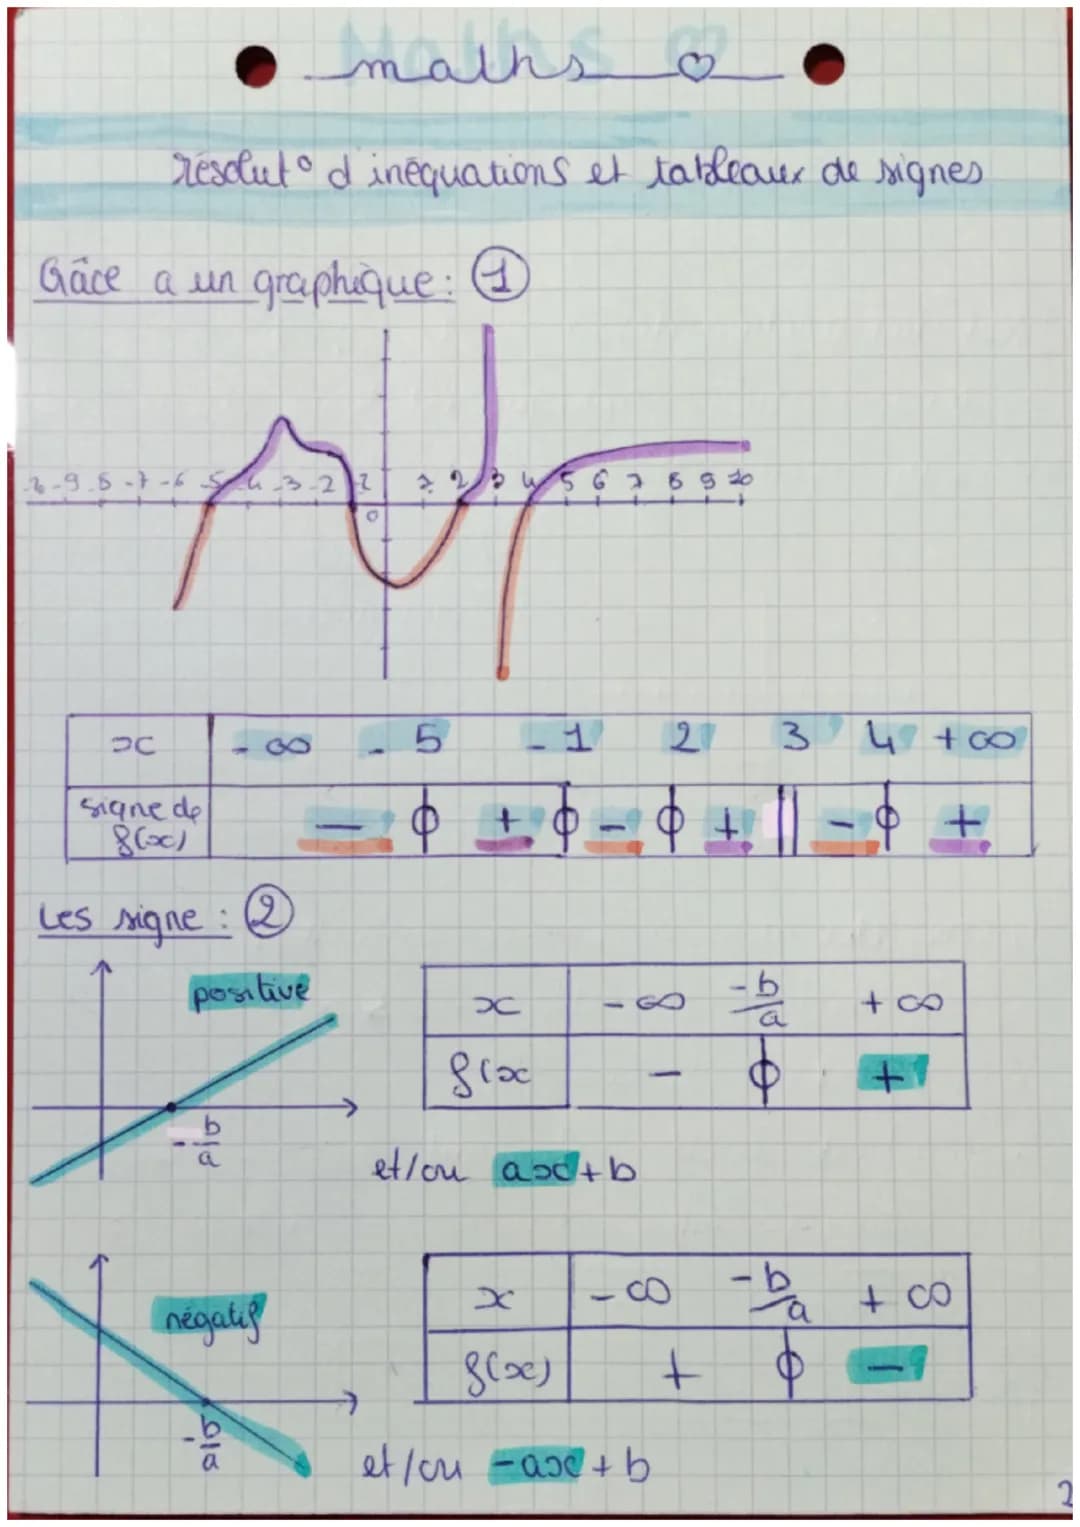 maths
résolut° d'inéquations et tableaux de signes
Grâce a un graphique : 1
-9 -8 -7 -6 -5 -4 -3 -2 -1 1 2 3 4 5 6 7 8 9 10
0
x -∞ -5 -1 2 3 4 +∞
signe de f(x) - 0 + 0 - 0 + || - 0 +
Les signe : 2
positive
-b/a
x -∞ -b/a +∞
f(x - 0 +
et/ou ax+b
négatif
-b/a
x -∞ -b/a +∞
f(x) + 0 -
et/ou -ax+b